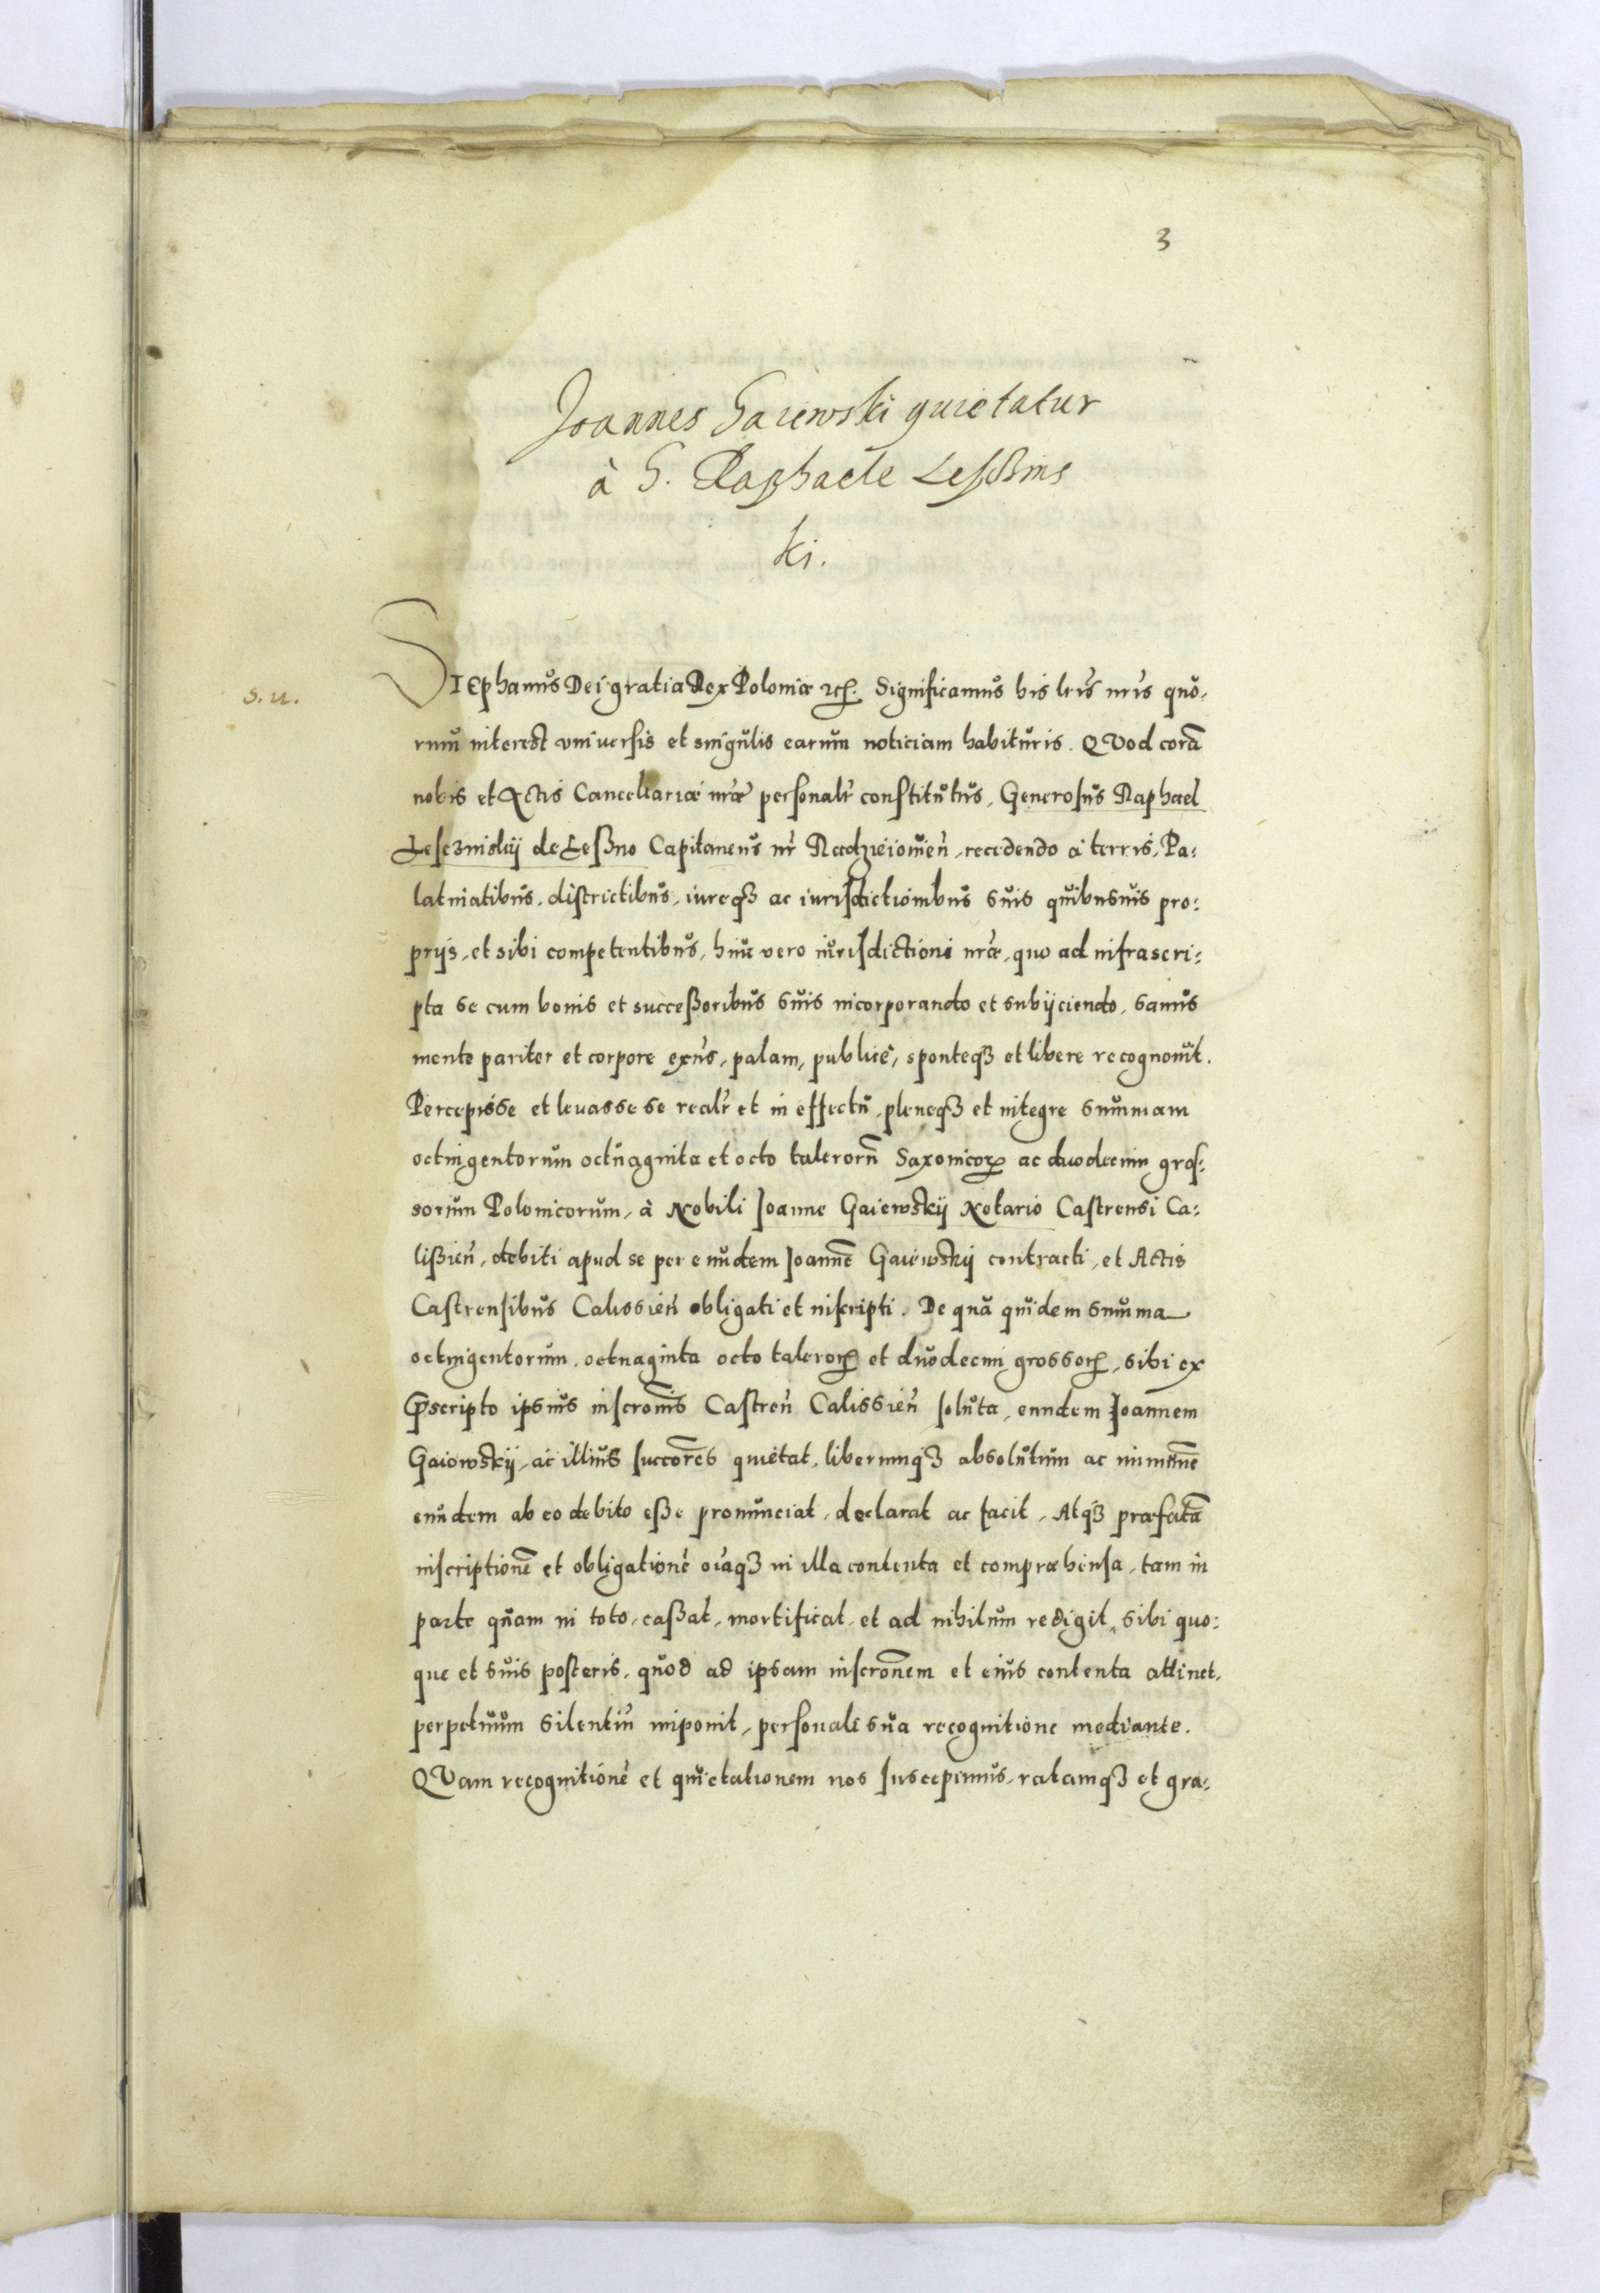 3
Joannes Gaiewski quietatur
à G. Raphaele Lesßins
ki.
s. u.
STephanus Dei gratia Rex Poloniæ etc. Significamus his lris nris quo-
rum interest vniuersis et singulis earum noticiam habituris. QVod corā
nobis et Actis Cancellariæ nræ personalr constitutus, Generosus Raphael
Lesczinskij de Leßno Capitaneus nr Radzieiowień, recedendo a terris, Pa-
latinatibus, districtibus, iureqȝ ac iurisdictionibus suis quibusuis pro-
prijs, et sibi competentibus, huic vero iurisdictioni nræ, quo ad infrascri-
pta se cum bonis et succeßoribus suis incorporando et subijciendo, sanus
mente pariter et corpore exñs, palam, publicè, sponteqȝ et libere recognouit.
Percepisse et leuasse se realr et in effectu, pleneqȝ et integre summam
octingentorum octuaginta et octo talerorū Saxonicorꝝ ac duodecim gros-
sorum Polonicorum, à Nobili Joanne Gaiewskij Notario Castrensi Ca-
lißień, debiti apud se per eundem Joannē Gaiewskij contracti, et Actis
Castrensibus Calissień obligati et inscripti. De qua quidem summa
octingentorum octuaginta octo talerorꝝ et duodecim grossorꝝ, sibi ex
p̄scripto ipsius inscronis Castreń Calissień soluta, eundem Joannem
Gaiowskij, ac illius succores quietat, liberumqȝ absolutum ac immunē
eundem ab eo debito eße pronunciat, declarat ac facit, Atqȝ præfatā
inscriptionē et obligationē oiaqȝ in illa contenta et compræhensa, tam in
parte quam in toto, caßat, mortificat, et ad nihilum redigit, sibi quo-
que et suis posteris, quod ad ipsam inscronem et eius contenta attinet,
perpetuum silentiū imponit, personali sua recognitione mediante.
QVam recognitionē et quietationem nos suscepimus, ratamqȝ et gra-